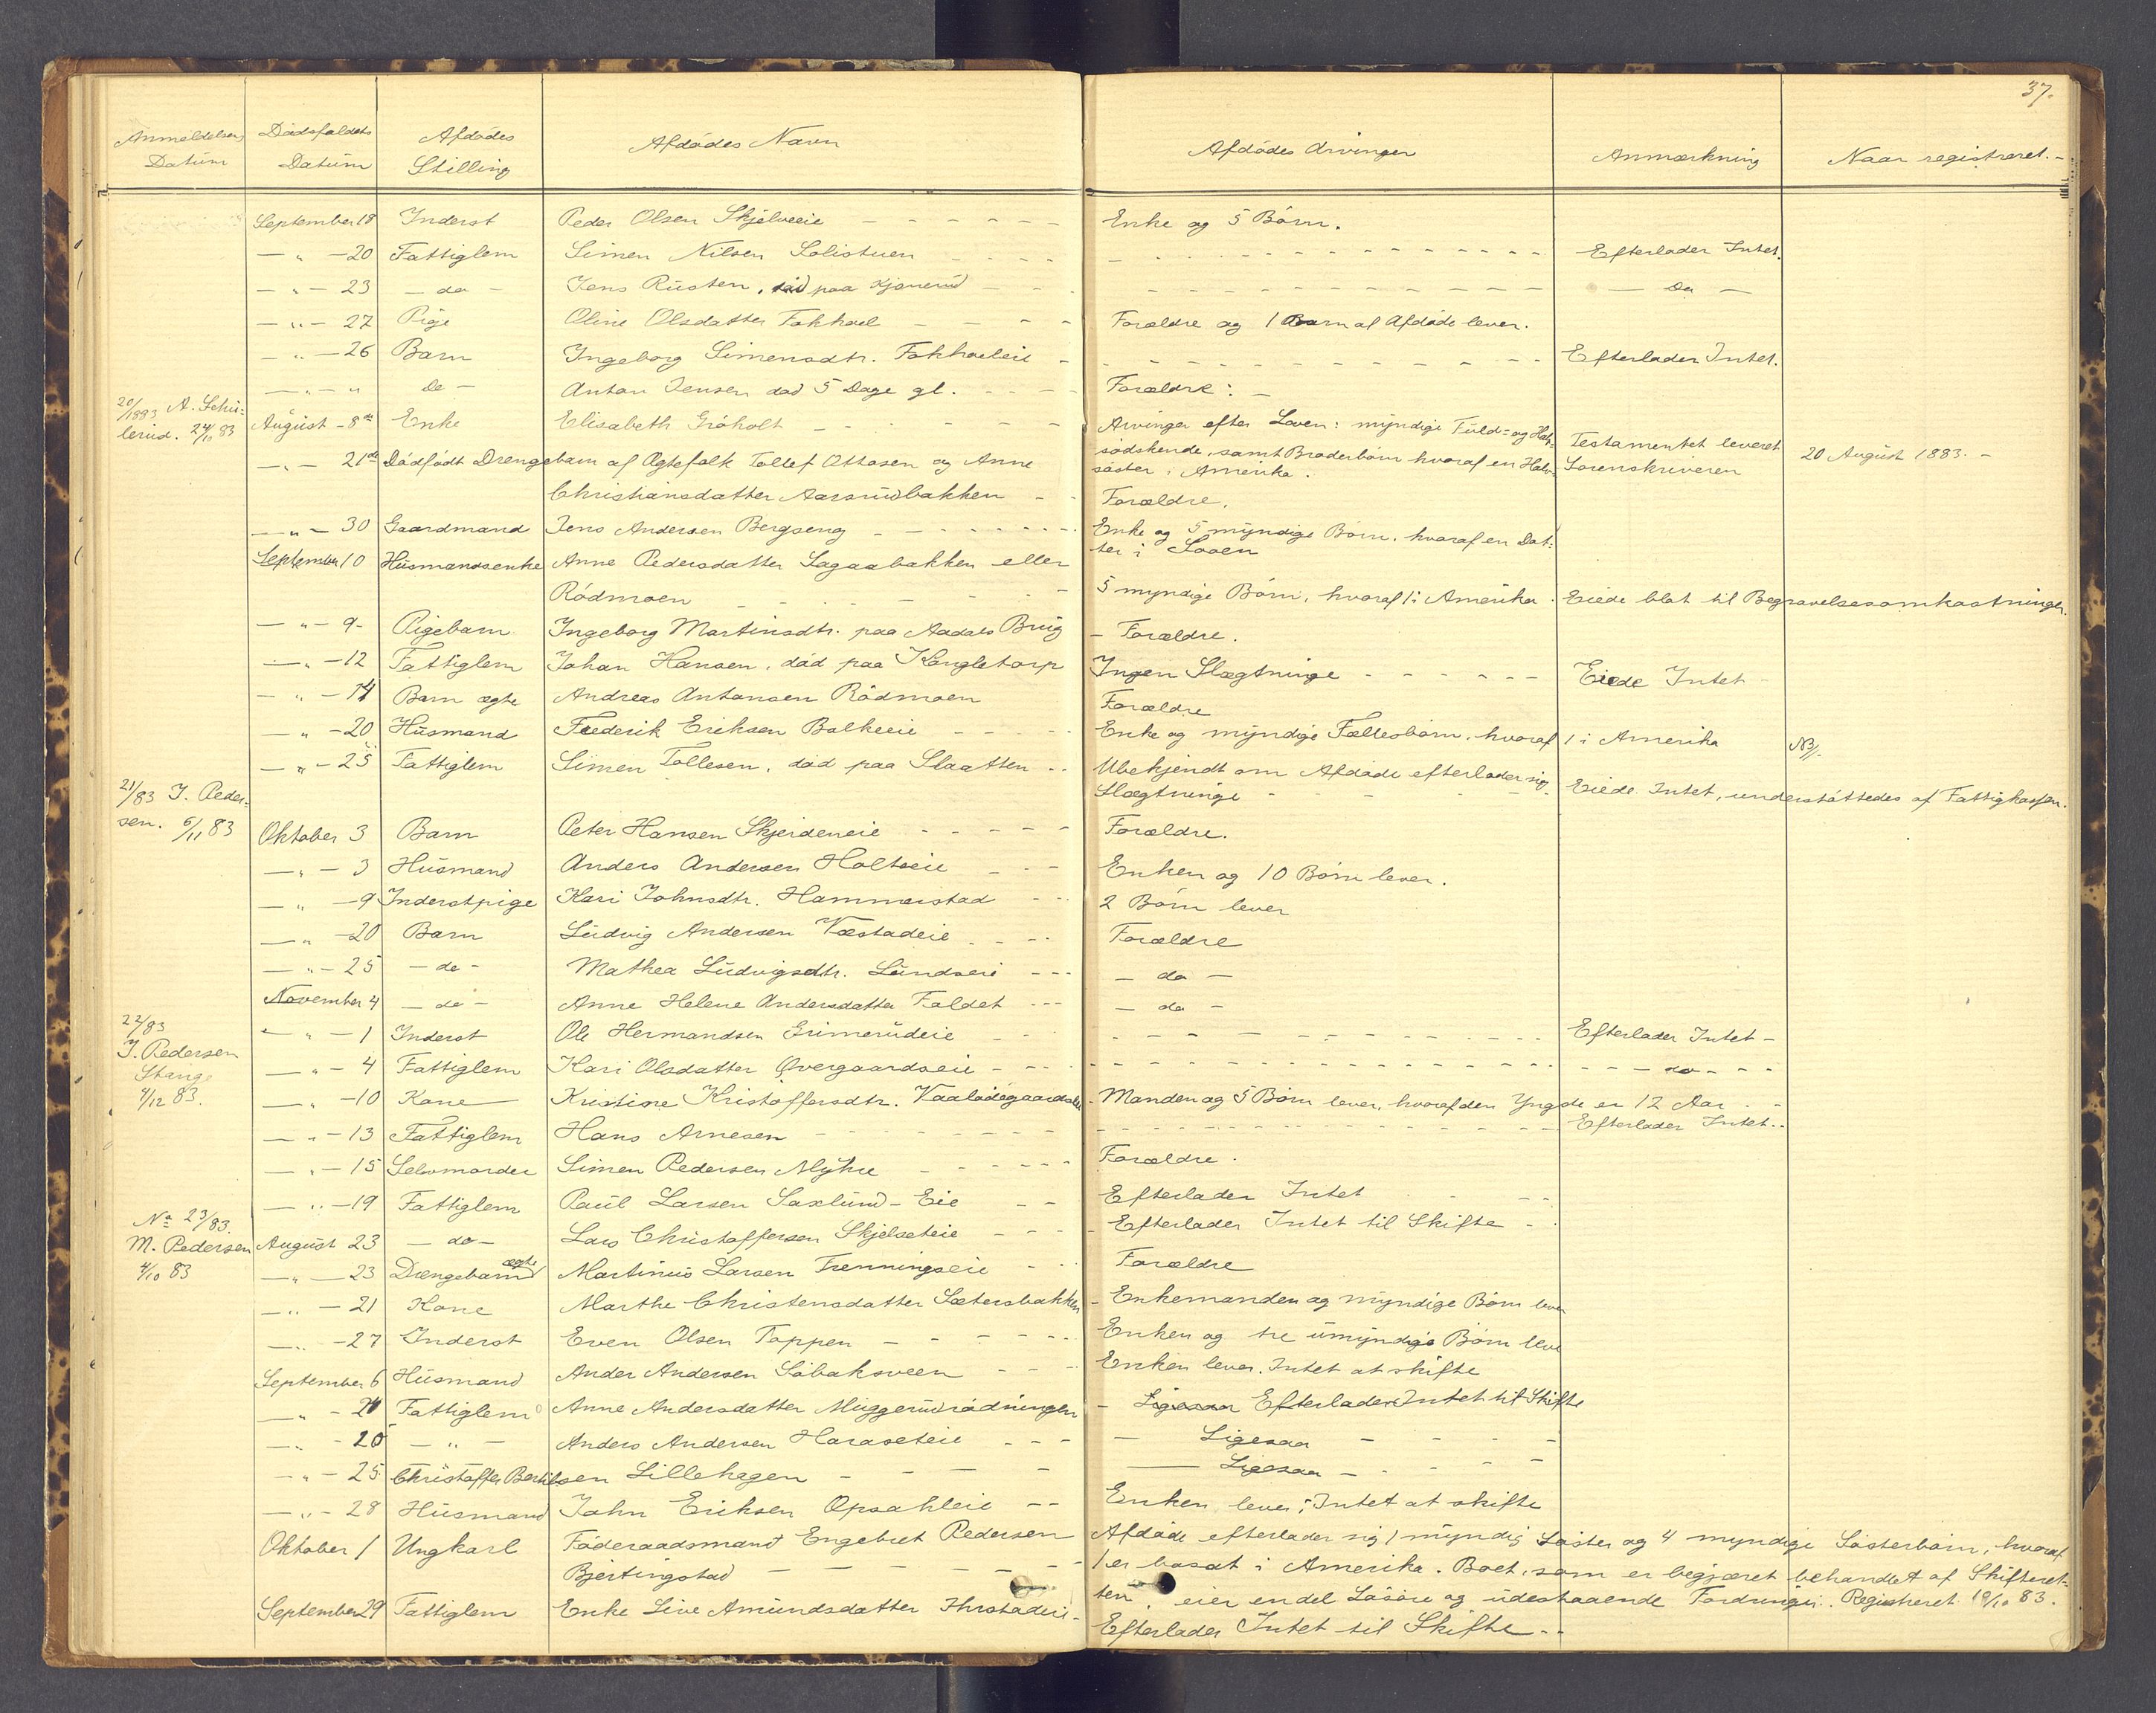 37.
Anmeldelsens Datum | Dødsfaldets Datum | Afdødes Stilling | Afdødes Navn | Afdødes Arvinger | Anmærkning | Naar registreret. -
September 18 | Inderst | Peder Olsen Skjelveeie | Enke og 5 Børn.
— „ — 20 | Fattiglem | Simen Nilsen Solistuen | Efterlader Intet.
— „ — 23 | — do — | Jens Rusten, død paa Kjonerud | — Do —
— „ — 27 | Pige | Oline Olsdatter Fokhoel | Forældre og 1 Barn af Afdøde lever.
— „ — 26 | Barn | Ingeborg Simensdtr. Fokhoeleie | Efterlader Intet.
— „ — „ | Do — | Anton Jensen død 5 Dage gl. | Forældre: —
20/1883 A. Schü-
lerud. 24/10 83 | August - 8de | Enke | Elisabeth Gröholt | Arvinger efter Loven: myndige Fuld= og Halv-
sødskende, samt Broderbørn hvoraf en Halv-
søster i Amerika. | Testamentet leveret
Sorenskriveren | 20 August 1883. -
— „ — 21de | Dødfødt Drengebarn af Ægtefolk Tollef Ottosen og Anne
Christiansdatter Aarsrudbakken | Forældre.
— „ — 30 | Gaardmand | Jens Andersen Bergseng | Enke og 5 myndige Børn, hvoraf en Dat-
ter i
September 10 | Husmandsenke | Anne Pedersdatter Sagaabakken eller
Rødmoen | 5 myndige Børn, hvoraf 1 i Amerika. | Eiede blot til Begravelsesomkostninger.
— „ — 9 - | Pigebarn | Ingeborg Martinsdtr. paa Aadals Brug | - Forældre.
— „ — 12 | Fattiglem | Johan Hansen, død paa Kongletorp | Ingen Slægtninge | Eiede Intet
— „ — 14 | Barn ægte | Andreas Antonsen Rødmoen | Forældre
— „ — 20 | Husmand | Frederik Eriksen Bolkeeie | Enke og myndige Fællesbørn, hvoraf 1 i Amerika | NB/.
— „ — 25 | Fattiglem | Simen Tollesen, død paa Slaatten | Ubekjendt om Afdøde efterlader sig
Slægtninge | Eiede Intet, understøttedes af Fattigkassen.
21/83 J. Peder-
sen. 6/11 83 | Oktober 3 | Barn | Peter Hansen Skjerdeneie | Forældre.
— „ — 3 | Husmand | Anders Andersen Holtseie | Enken og 10 Børn lever.
— „ — 9 | Inderstpige | Kari Johnsdtr. Hammerstad | 2 Børn lever
— „ — 20 | Barn | Ludvig Andersen Væstadeie | Forældre
— „ — 25 | — do — | Mathea Ludvigsdtr. Lundseie | — do —
November 4 | — do — | Anne Helene Andersdatter Faldet | — do —
22/83
J. Pedersen
Stange
4/12 83. | — „ — 1 | Inderst | Ole Hermandsen Grimerudeie | Efterlader Intet -
— „ — 4 | Fattiglem | Kari Olsdatter Øvergaardseie | — do —
— „ — 10 | Kone | Kristine Kristoffersdtr. | Manden og 5 Børn lever, hvoraf den Yngste er 12 Aar
— „ — 13 | Fattiglem | Hans Arnesen | Efterlader Intet..
— „ — 15 | Selvmorder | Simen Pedersen Myhre | Forældre.
— „ — 19 | Fattiglem | Paul Larsen Saxlund - Eie | Efterlader Intet
No 23/83.
M. Pedersen
4/10 83 | August 23 | — do — | Lars Christoffersen Skjelseteie | - Efterlader Intet til Skifte -
— „ — 23 | Drengebarn ægte | Martinus Larsen Frenningseie | Forældre
— „ — 21 | Kone | Marthe Christensdatter Sætersbakken | - Enkemanden og myndige Børn lever
— „ — 27 | Inderst | Even Olsen Toppen | Enken og tre umyndige Børn leve
September 6 | Husmand | Ander Andersen Søbaksveen | Enken lever. Intet at skifte
— „ — 24 | Fattiglem | Anne Andersdatter Muggerudrødningen | - Ligesaa Efterlader Intet til Skifte
— „ — 25 | — „ — | Anders Andersen Haraseteie | — Ligesaa —
— „ — 25 | Christoffer Bertilsen Lillehagen | — Ligesaa —
— „ — 28 | Husmand | John Eriksen Opsahleie | Enken lever; Intet at skifte
Oktober 1 | Ungkarl | Føderaadsmand Engebret Pedersen
Bjertingstad | Afdøde efterlader sig 1 myndig Søster og 4 myndige Søsterbørn, hvoraf
1 er bosat i Amerika. Boet, som er begjæret behandlet af Skifteret-
ten, eier endel Løsøre og udestaaende Fordringer. Registreret 19/10 83.
September 29 | Fattiglem | Enke Live Amundsdatter Ihrstadeie | Efterlader Intet til Skifte..